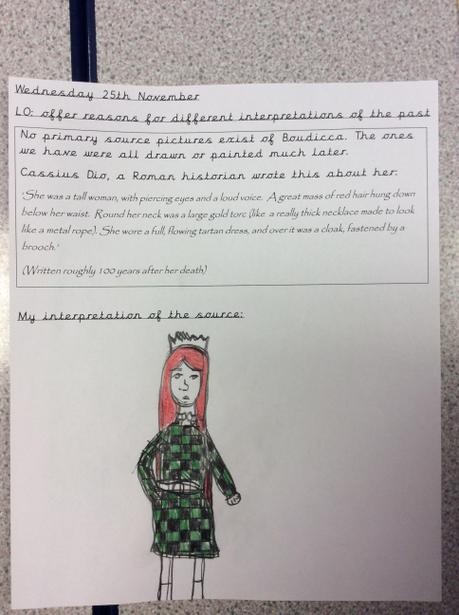 Wednesday 25th November
LO: offer reasons for different interpretations of the past
No primary source pictures exist of Boudicca. The ones
we have were all drawn or painted much later.
Cassius Dio, a Roman historian wrote this about her:
'She was a tall woman, with piercing eyes and a loud voice. A great mass of red hair hung down
below her waist. Round her neck was a large gold torc (like a really thick necklace made to look
like a metal rope). She wore a full, flowing tartan dress, and over it was a cloak, fastened by a
brooch.'
(Written roughly 100 years after her death)
My interpretation of the source: